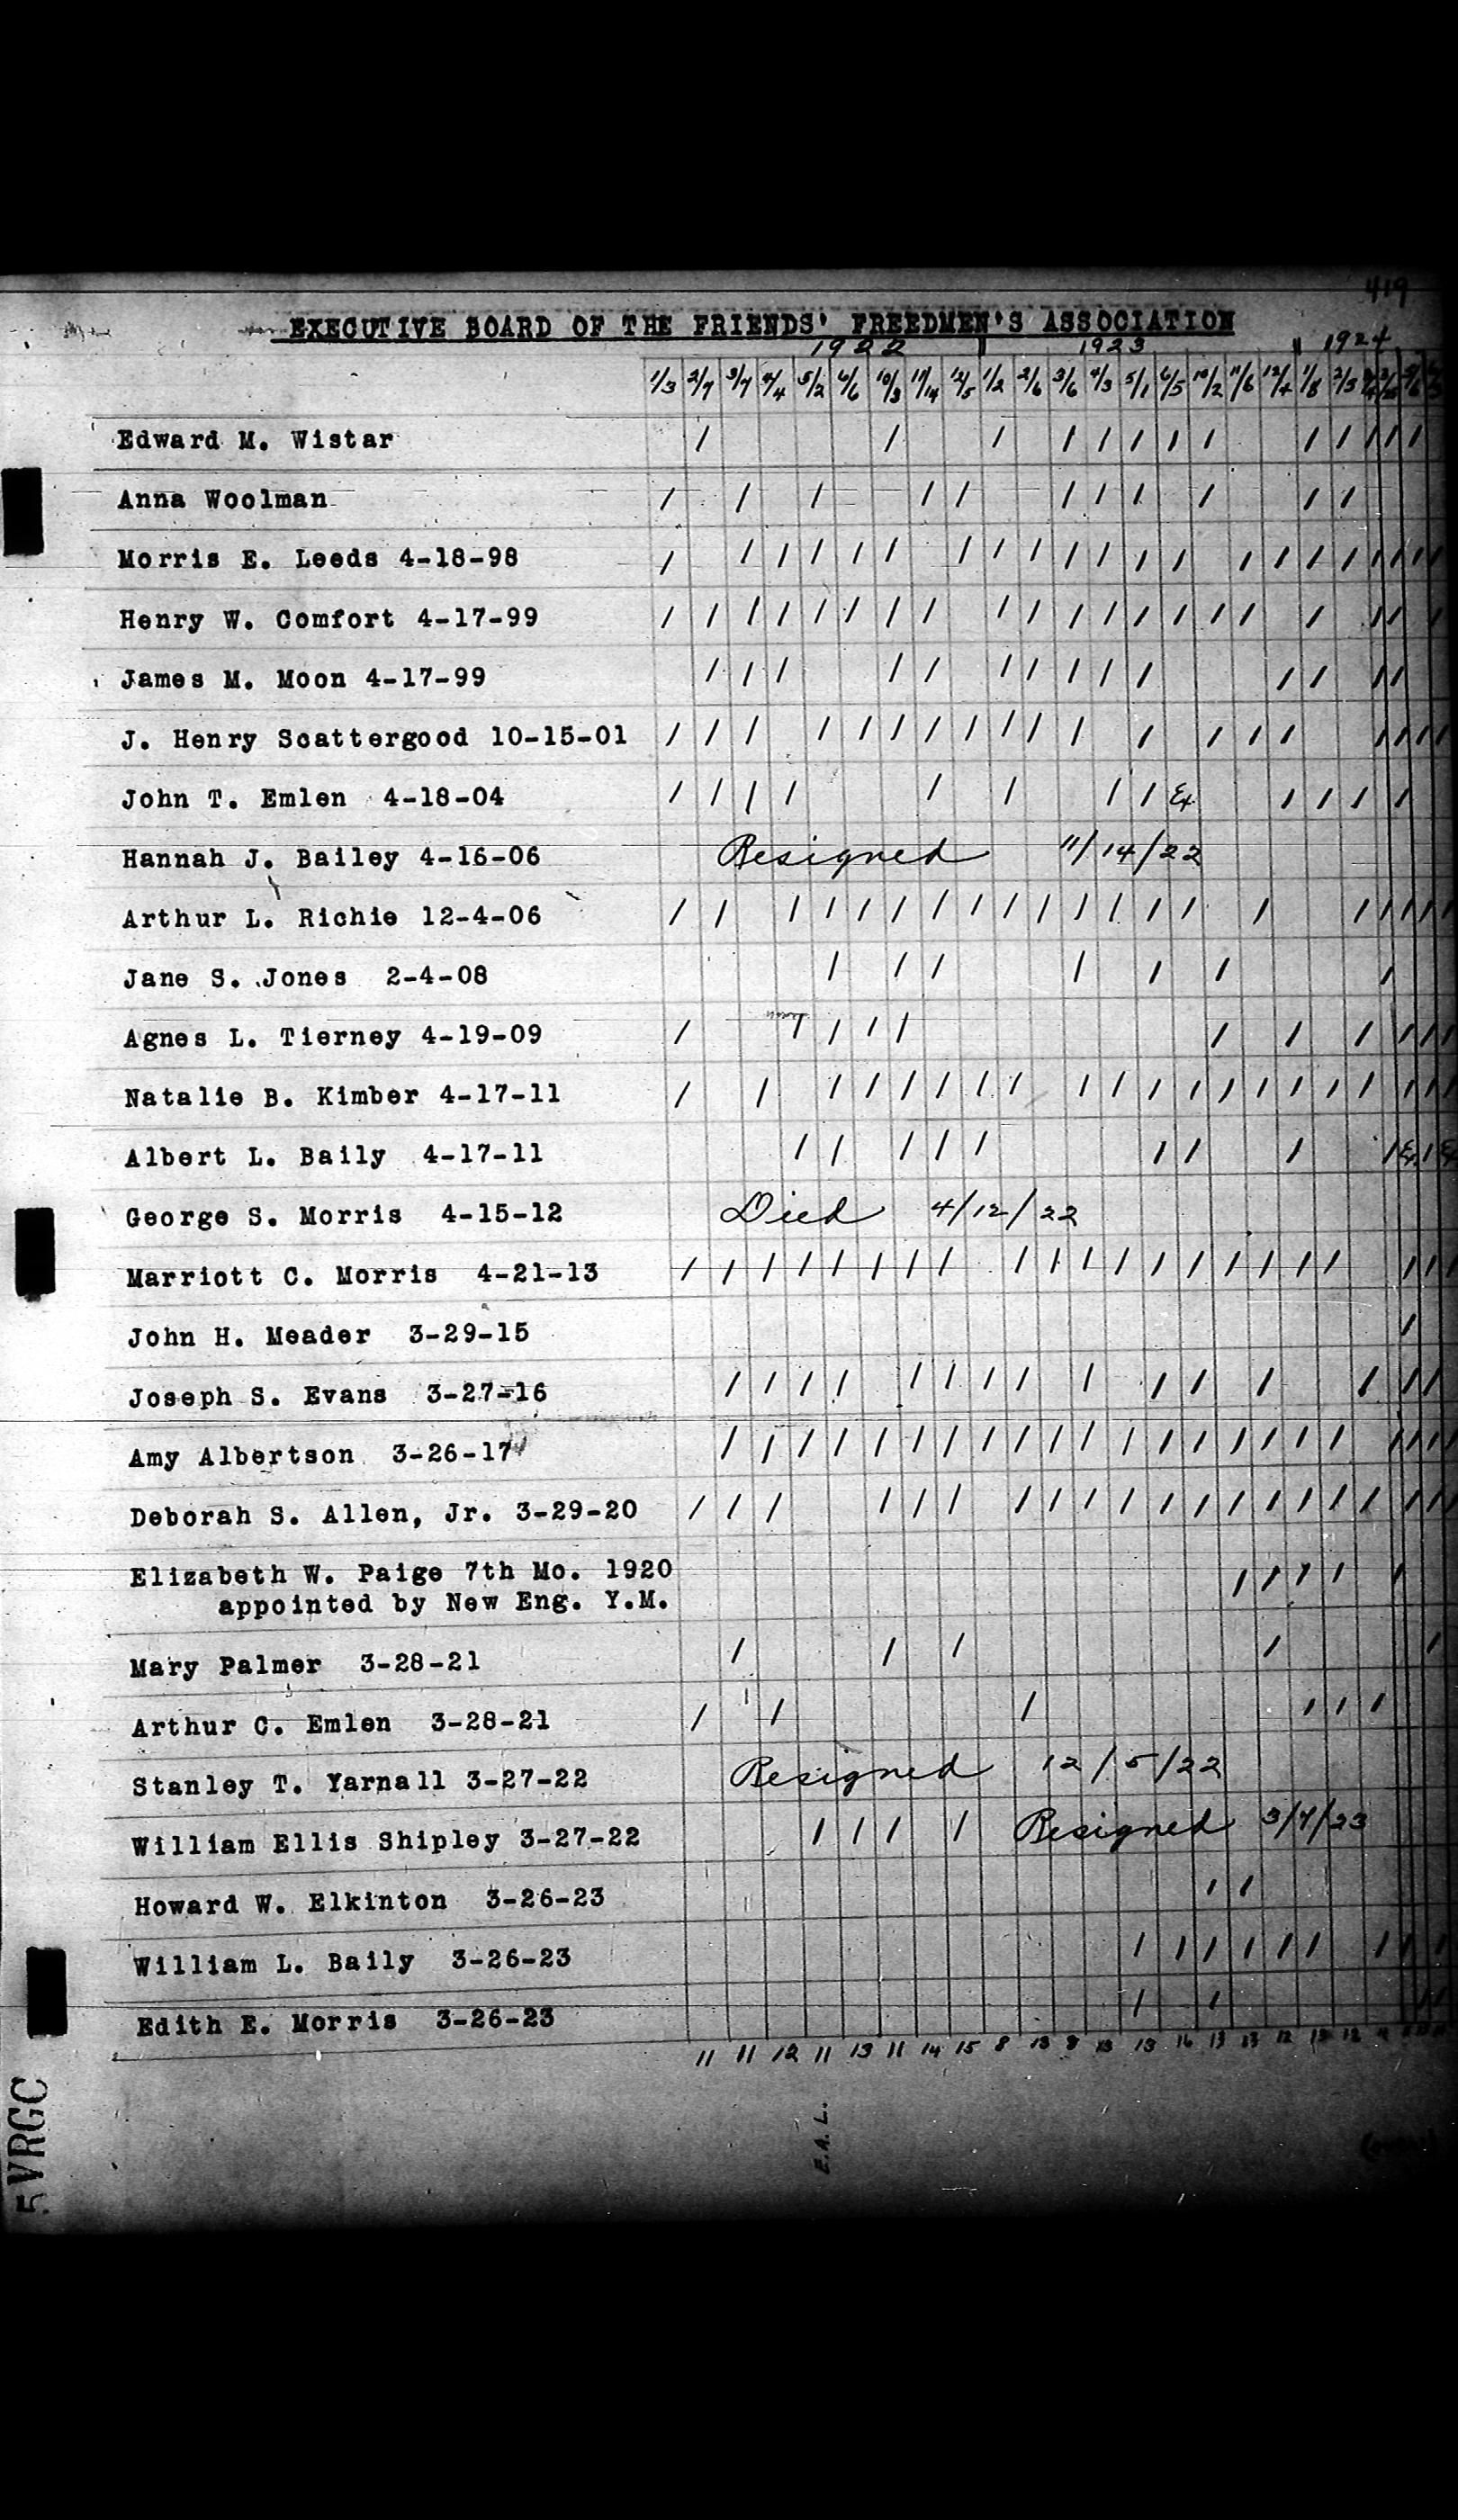 419
EXECUTIVE BOARD OF THE FRIENDS' FREEDMEN'S ASSOCIATION
1922 1923 1924
1/3 2/7 3/7 4/4 5/2 6/6 10/3 11/14 12/5 1/2 2/6 3/6 4/3 5/1 6/5 10/2 11/6 12/4 1/8 2/5
Edward M. Wistar / / / / / / / / / / / / /
Anna Woolman / / / / / / / / / / /
Morris E. Leeds 4-18-98
Henry W. Comfort 4-17-99
James M. Moon 4-17-99
J. Henry Scattergood 10-15-01
John T. Emlen 4-18-04
Hannah J. Bailey 4-16-06 Resigned 11/14/22
Arthur L. Richie 12-4-06
Jane S. Jones 2-4-08 / / / / / / /
Agnes L. Tierney 4-19-09
Natalie B. Kimber 4-17-11
Albert L. Baily 4-17-11
George S. Morris 4-15-12 Died 4/12/22
Marriott C. Morris 4-21-13
John H. Meader 3-29-15 /
Joseph S. Evans 3-27-16
Amy Albertson 3-26-17
Deborah S. Allen, Jr. 3-29-20
Elizabeth W. Paige 7th Mo. 1920
appointed by New Eng. Y.M. / / / / /
Mary Palmer 3-28-21 / / / / /
Arthur C. Emlen 3-28-21
Stanley T. Yarnall 3-27-22 Resigned 12/5/22
William Ellis Shipley 3-27-22 / / / / Resigned 3/7/23
Howard W. Elkinton 3-26-23 / /
William L. Baily 3-26-23 / / / / / / / / /
Edith E. Morris 3-26-23 / / / /
11 11 12 11 13 11 14 15 8 13 8 13 13 16 13 13 12
E.A.L.
5VRGC